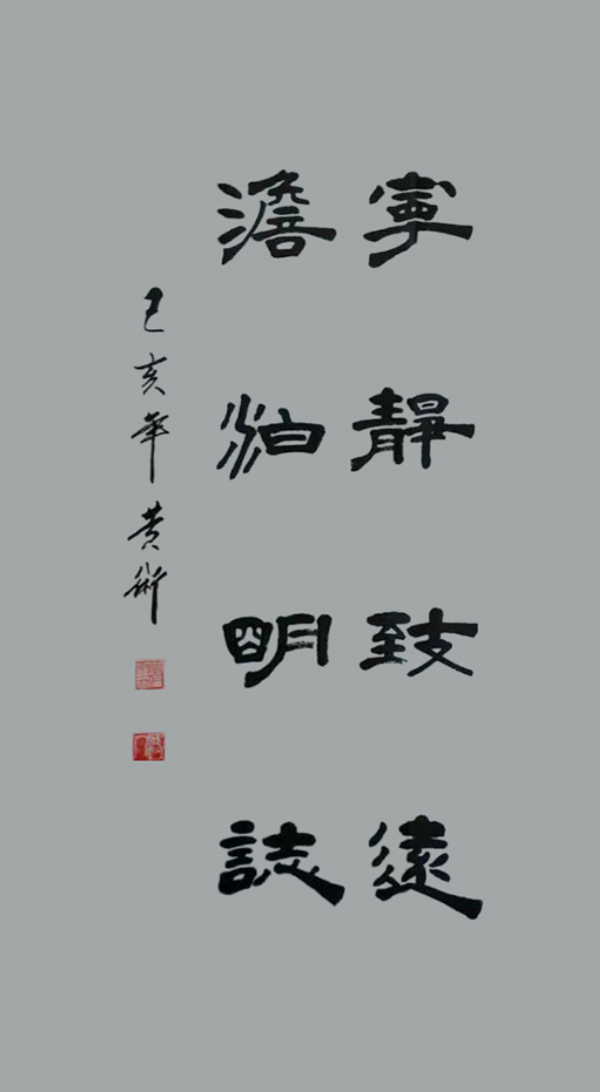 寧靜致遠
澹泊明誌
己亥年黄術